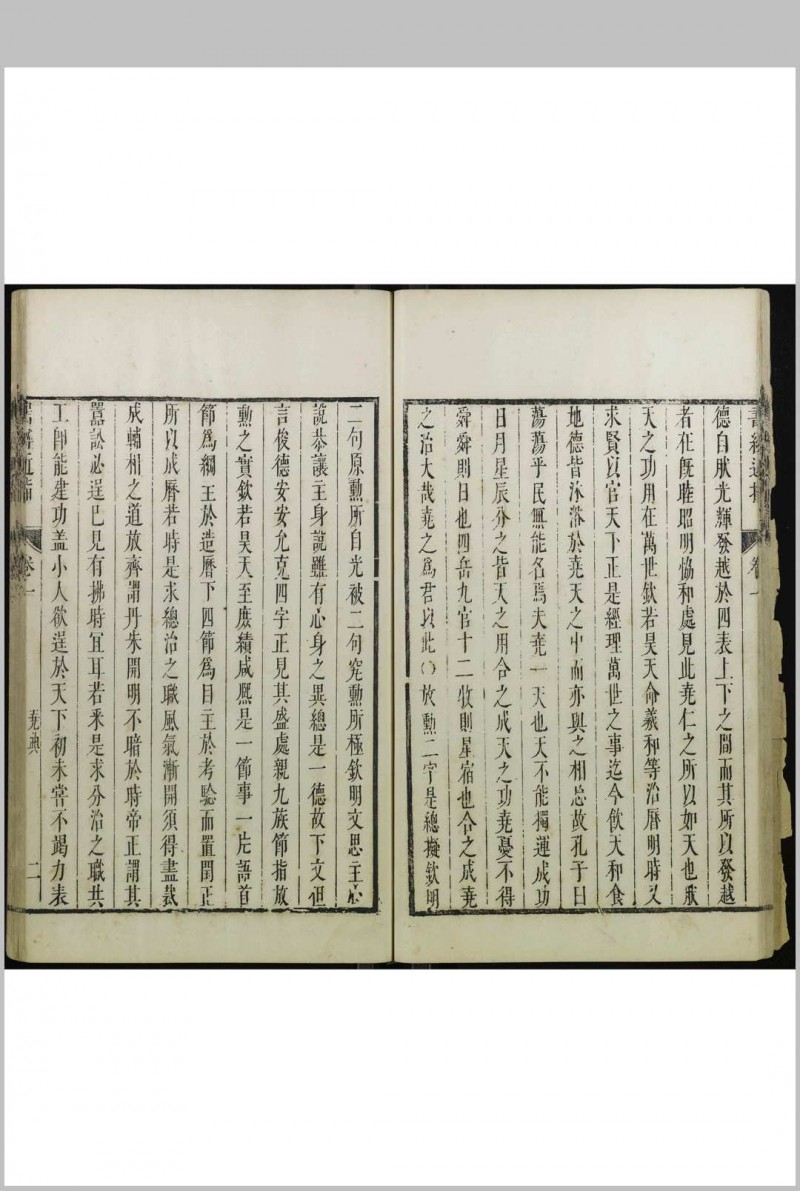 書經近指 卷一
德自然光輝發越於四表上下之間而其所以發越
者在旣睦昭明恊和處見此堯仁之所以如天也我
天之功用在萬世欽若昊天命羲和等治曆明時又
求賢以官天下正是經理萬世之事迄今飲天和食
地德皆沐浴於堯天之中而亦與之相忘故孔子曰
蕩蕩乎民無能名焉夫堯一天也天不能獨運成功
日月星辰分之皆天之用合之成天之功堯憂不得
舜舜則日也四岳九官十二牧則星宿也合之成堯
之治大哉堯之爲君以此〇放勳二字是總擬欽明
二句原勳所自光被二句究勳所極欽明文思主心
說恭讓主身說雖有心身之異總是一德故下文但
言俊德安安允克四字正見其盛處親九族節指放
勳之實欽若昊天至庶績咸熙是一節事一片語首
節爲綱王於造曆下四節爲目主於考驗而置閏正
所以成曆若時是求總治之職風氣漸開須得盡裁
成輔相之道放齊謂丹朱開明不暗於時帝正謂其
嚚訟必逞已見有拂時宜耳若采是求分治之職共
工卽能建功盖小人欲逞於天下初未甞不竭力表
書經近指 卷一 堯典 二